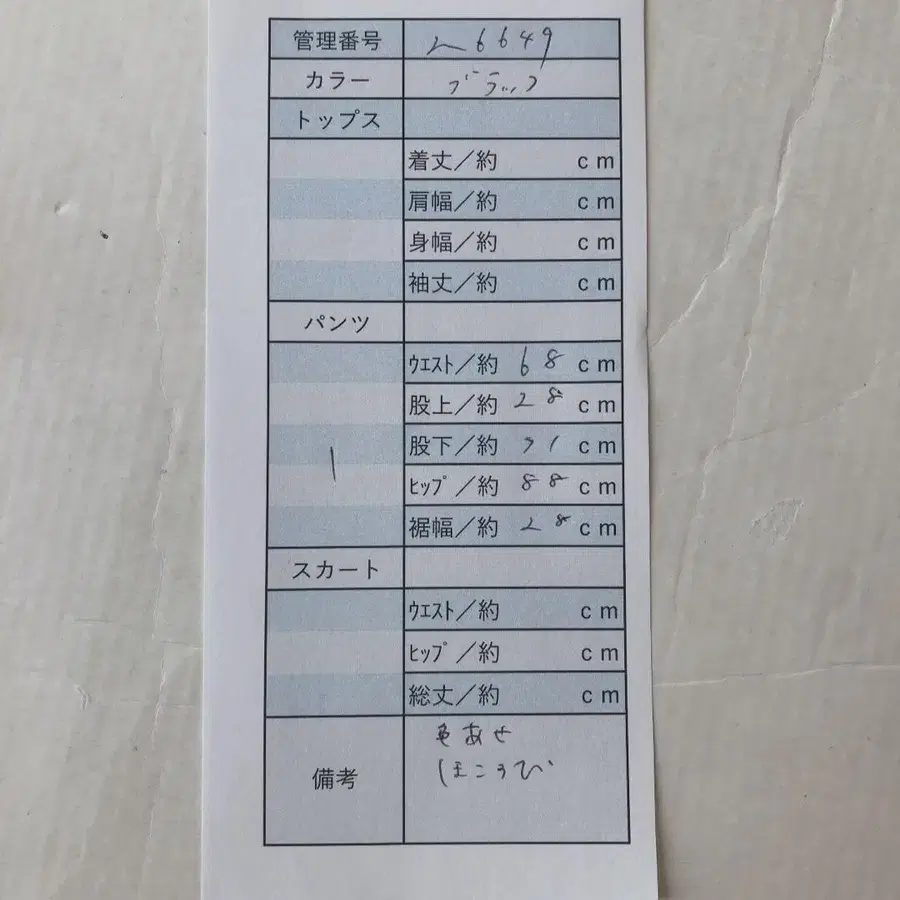 管理番号 26649
カラー ブラック
トップス
着丈／約 cm
肩幅／約 cm
身幅／約 cm
袖丈／約 cm
パンツ
ｳｴｽﾄ／約 68 cm
股上／約 28 cm
1 股下／約 cm
ﾋｯﾌﾟ／約 88 cm
裾幅／約 28 cm
スカート
ｳｴｽﾄ／約 cm
ﾋｯﾌﾟ／約 cm
総丈／約 cm
備考 色あせ
ほころび